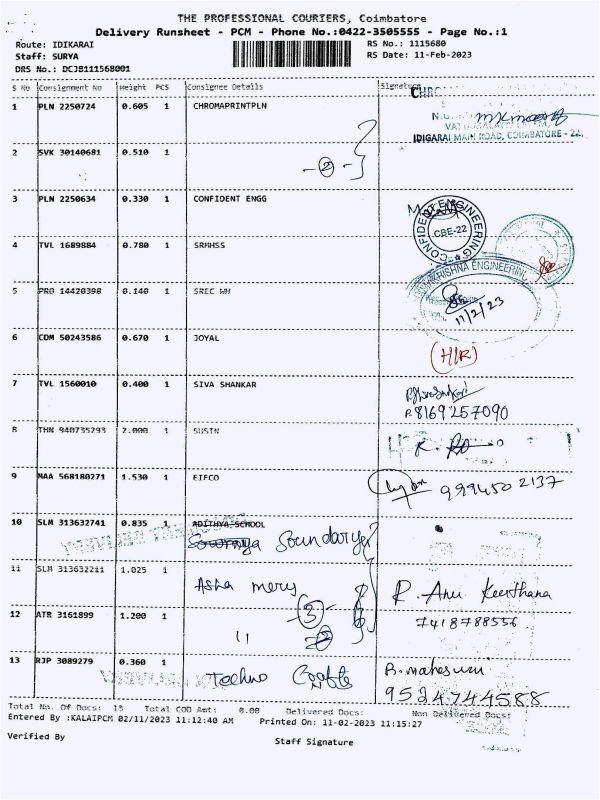 THE PROFESSIONAL COURIERS, Coimbatore
Delivery Runsheet - PCM - Phone No.:0422-3505555 - Page No.:1
Route: IDIKARAI RS No.: 1115680
Staff: SURYA RS Date: 11-Feb-2023
DRS No.: DCJB111568001
S No Consignment No Weight PCS Consignee Details Signature
1 PLN 2250724 0.605 1 CHROMAPRINTPLN
IDIGARAI MAIN ROAD, COIMBATORE - 22.
2 SVK 30140681 0.510 1
2
3 PLN 2250634 0.330 1 CONFIDENT ENGG
CONFIDENT ENGINEERING
CBE-22
4 TVL 1689884 0.780 1 SRMHSS
5 PRO 14420398 0.140 1 SREC WH
11/2/23
6 COM 50243586 0.670 1 JOYAL
(H/R)
7 TVL 1560010 0.400 1 SIVA SHANKAR
8169257090
8 THN 940735293 2.000 1 SUSIN
9 MAA 568180271 1.530 1 EIFCO
9994502137
10 SLM 313632741 0.835 1 ADITHYA SCHOOL
Soundarya
11 SLM 313632211 1.025 1
Asha mery
R. Anu Keerthana
3
12 ATR 3161899 1.200 1
7418788556
13 RJP 3089279 0.360 1 Techno Crafts
B. maheswari
9524744588
Total No. Of Docs: 13 Total COD Amt: 0.00 Delivered Docs: Non Delivered Docs:
Entered By :KALAIPCM 02/11/2023 11:12:40 AM Printed On: 11-02-2023 11:15:27
Verified By
Staff Signature